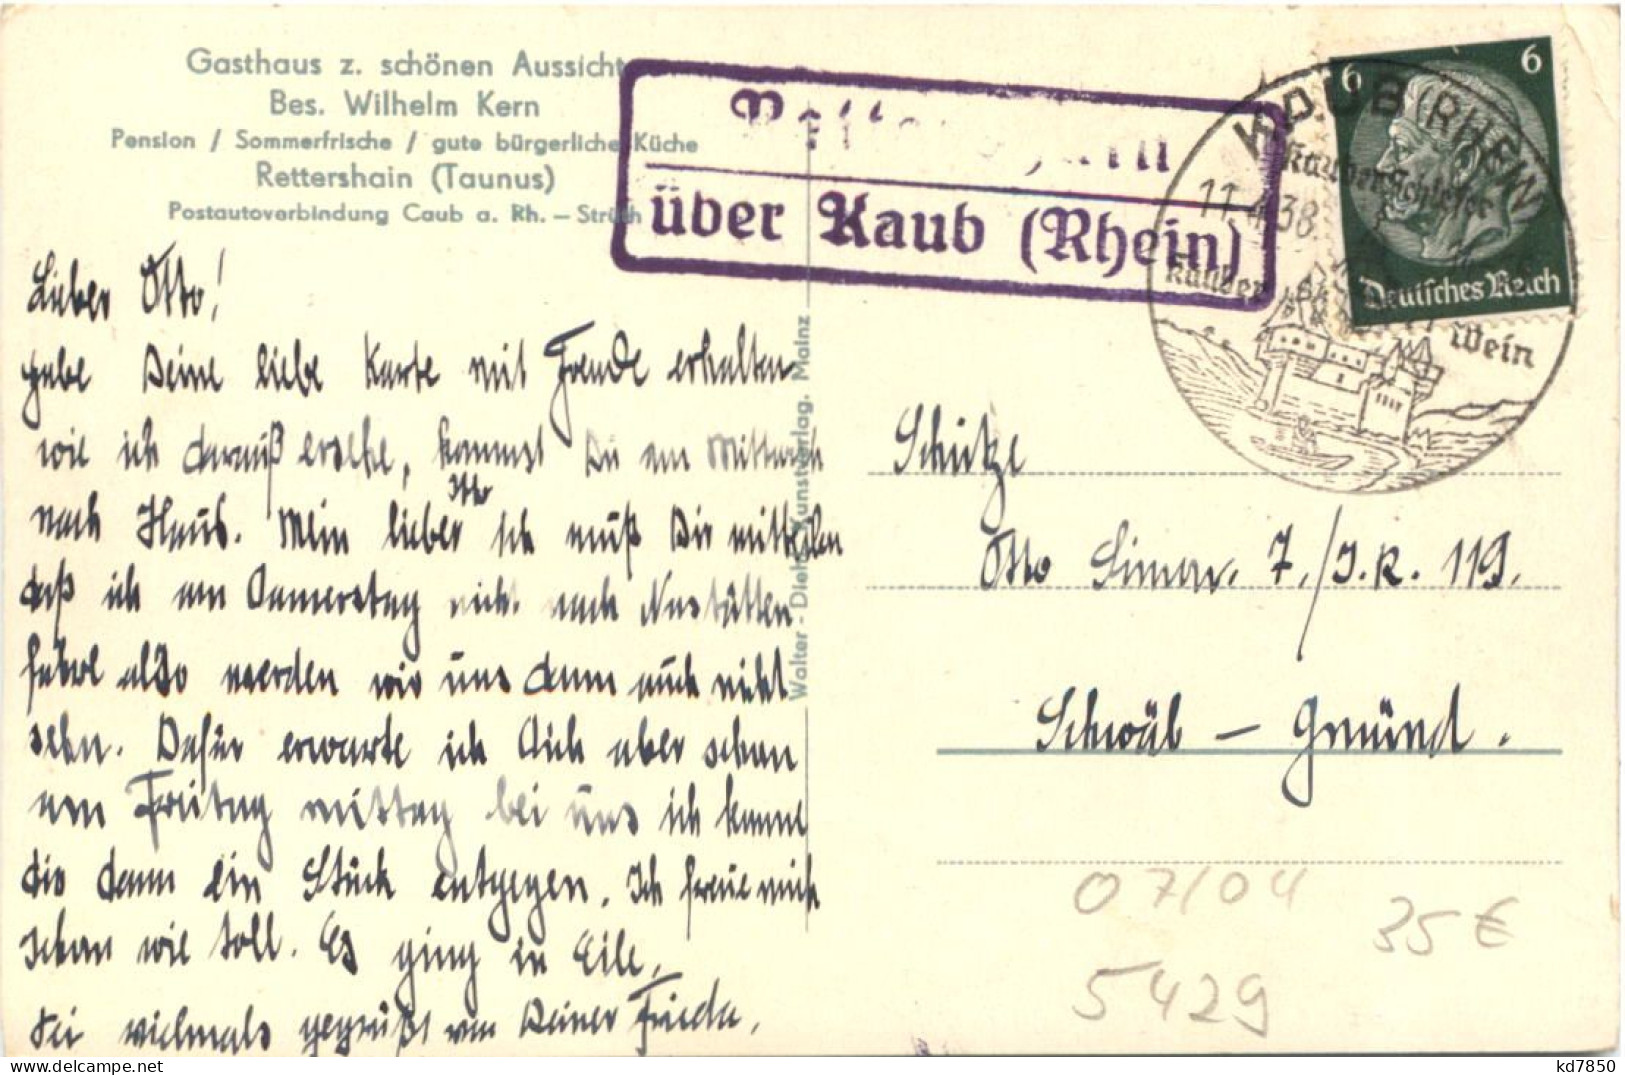 Gasthaus z. schönen Aussicht
Bes. Wilhelm Kern
Pension / Sommerfrische / gute bürgerliche Küche
Rettershain (Taunus)
Postautoverbindung Caub a. Rh. – Strüth
über Kaub (Rhein)
KAUB (RHEIN)
11.4.38.
Kauber Schiefer
Kauber
Wein
6 6
Deutsches Reich
Lieber Otto!
habe Deine liebe Karte mit Freude erhalten
wie ich darauß ersehe, kommst Du am Mittwoch
nach Haus. Mein lieber Otto ich muß Dir mitteilen
daß ich am Donnerstag nicht nach Nastätten
fahre also werden wir uns dann auch nicht
sehn. Dafür erwarte ich Dich aber schon
am Freitag mittag bei uns ich komme
dir dann ein Stück entgegen. Ich freue mich
schon wie toll. Es ging in Eile.
Sei vielmals gegrüßt von Deiner Frieda.
Walter-Dietz, Kunstverlag. Mainz
Schütze
Otto Simon. 7./J.R. 119.
Schwäb – Gmünd.
07/04
35 €
5429
kd7850